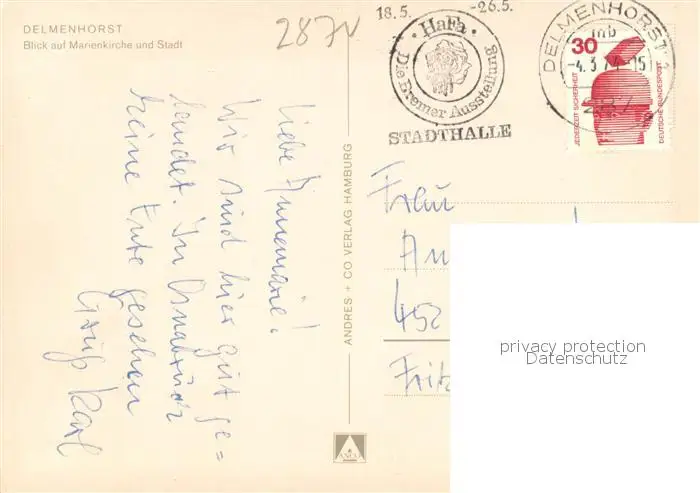 DELMENHORST
Blick auf Marienkirche und Stadt
287
18.5. -26.5.
HaFa
Die Bremer Ausstellung
STADTHALLE
DELMENHORST 1
mb
-4.3.74-15
2870
30
JEDERZEIT SICHERHEIT
DEUTSCHE BUNDESPOST
Liebe Annemarie!
Wir sind hier gut ge=
landet. In Osnabrück
keine Ente gesehen
Gruß Karl
ANDRES + CO VERLAG HAMBURG
ANCO
Frau
An
452
Fritz
privacy protection
Datenschutz